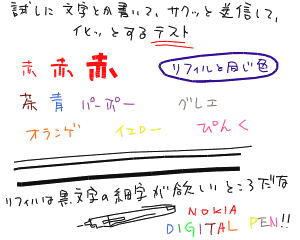 試しに文字とか書いて、サクッと送信して、
イヒッとするテスト
赤 赤 赤 リフィルと同じ色
茶 青 パーポー グレエ
オランゲ イエロー ぴんく
リフィルは黒、文字の細字が欲しいところだな
NOKIA
DIGITAL PEN!!